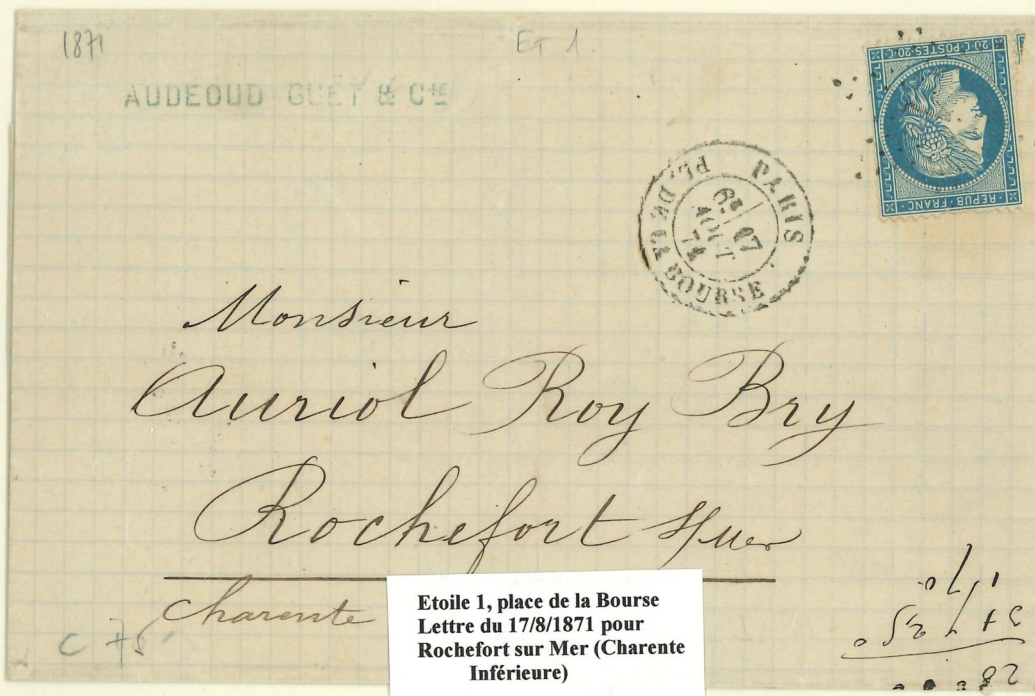 1871
Et 1.
AUDEOUD GUET & Cie
20·C·POSTES·20·C
REPUB·FRANC·
PARIS
PL. DE LA BOURSE
6E
17
AOUT
71
Monsieur
Auriol Roy Bry
Rochefort s/mer
Charente
C 75
Etoile 1, place de la Bourse
Lettre du 17/8/1871 pour
Rochefort sur Mer (Charente
Inférieure)